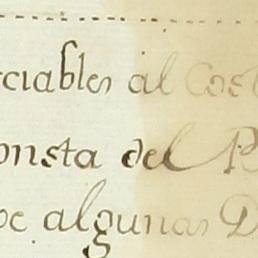 ciables al Cos
onsta del P
oe algunas D